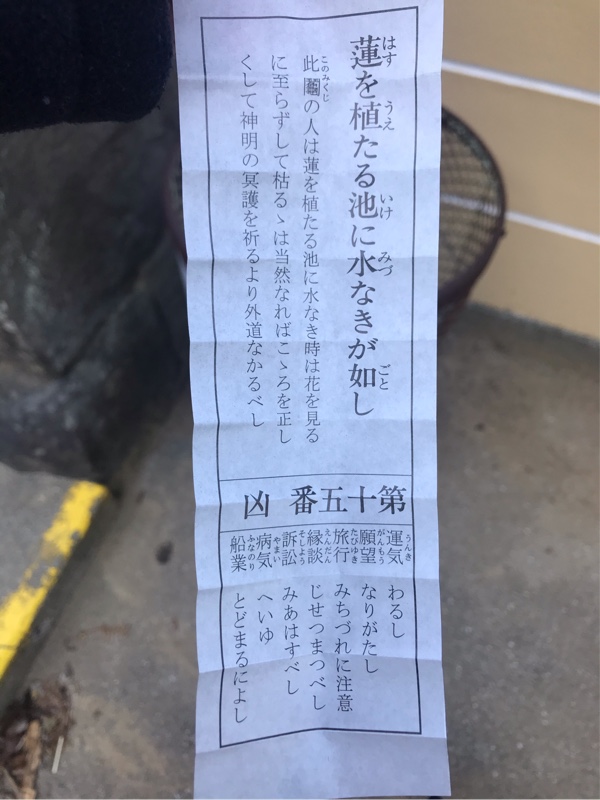 蓮を植たる池に水なきが如し
此鬮の人は蓮を植たる池に水なき時は花を見る
に至らずして枯るゝは当然なればこゝろを正し
くして神明の冥護を祈るより外道なかるべし
第十五番 凶
運気 わるし
願望 なりがたし
旅行 みちづれに注意
縁談 じせつまつべし
訴訟 みあはすべし
病気 へいゆ
船業 とどまるによし